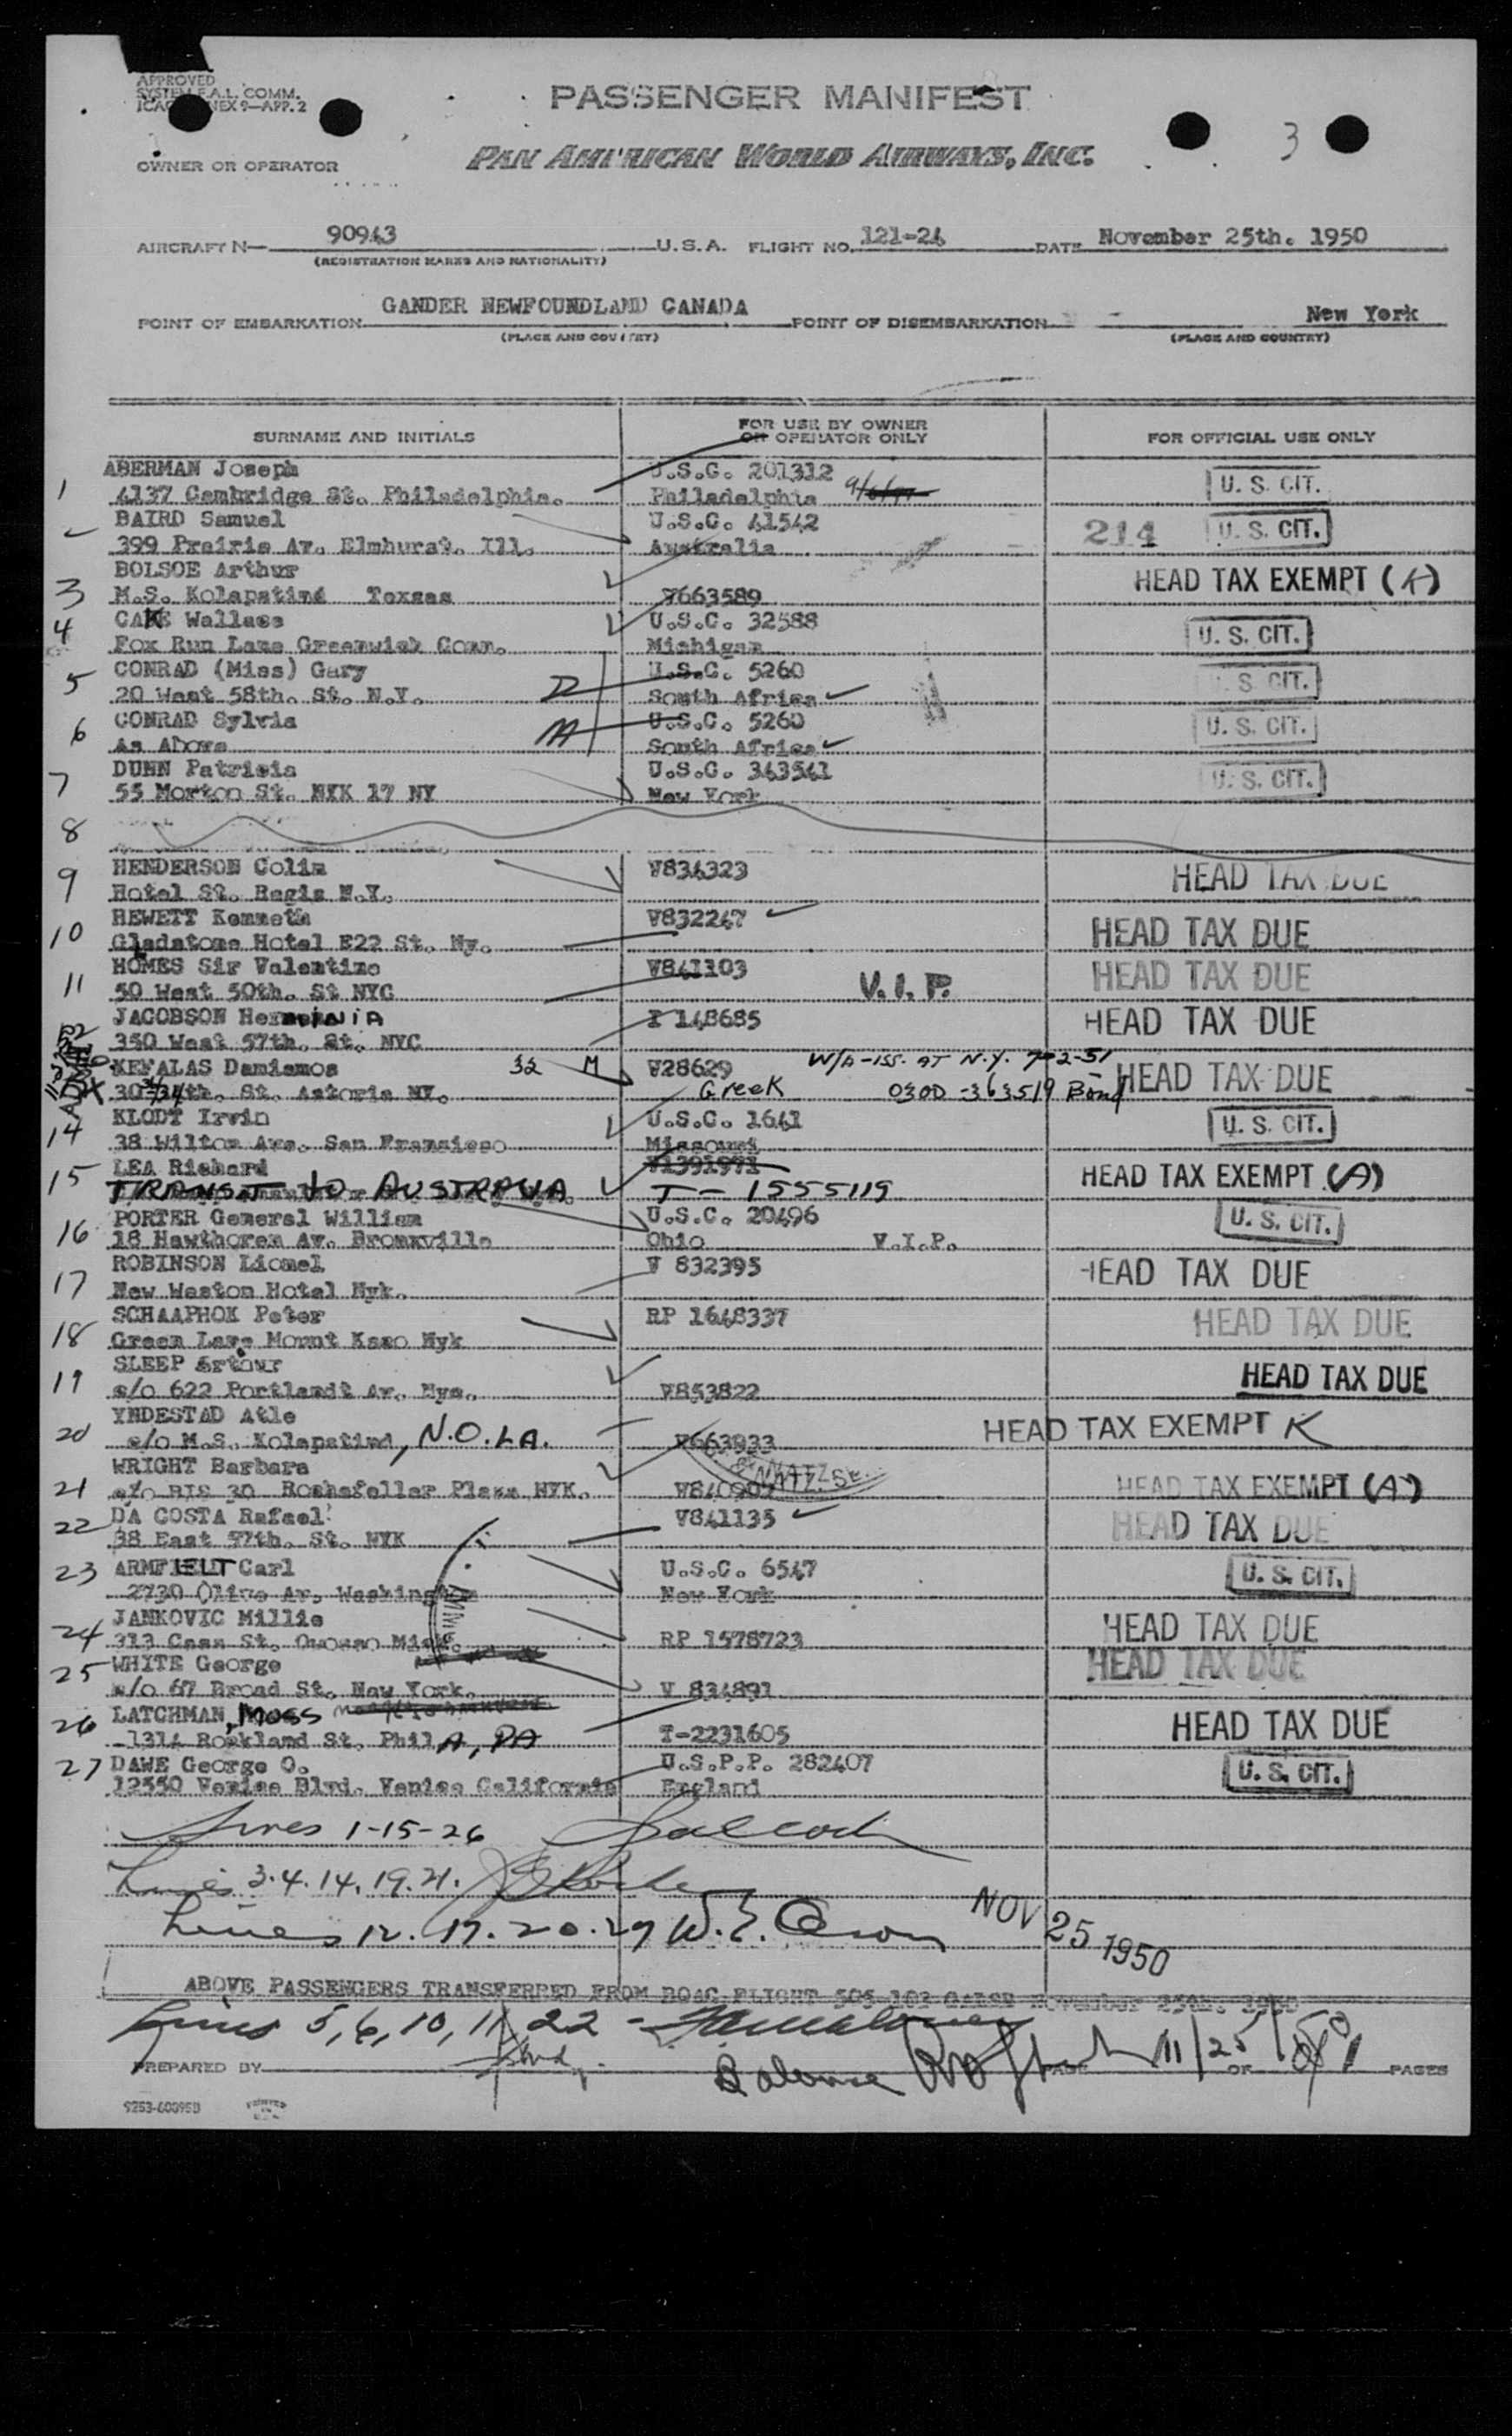 APPROVED
SYSTEM F.A.L. COMM.
NEX 9—APP. 2
PASSENGER MANIFEST
3
OWNER OR OPERATOR
PAN AMERICAN WORLD AIRWAYS, INC.
AIRCRAFT N— 90943 U.S.A. FLIGHT NO. 121-24 DATE November 25th. 1950
(REGISTRATION MARKS AND NATIONALITY)
POINT OF EMBARKATION GANDER NEWFOUNDLAND CANADA POINT OF DISEMBARKATION New York
(PLACE AND COUNTRY) (PLACE AND COUNTRY)
SURNAME AND INITIALS FOR USE BY OWNER OR OPERATOR ONLY FOR OFFICIAL USE ONLY
ABERMAN Joseph U.S.C. 201312
1 4137 Cambridge St. Philadelphia. Philadelphia U. S. CIT.
BAIRD Samuel U.S.C. 41542
399 Prairie Av. Elmhurst. Ill. Australia 214 U. S. CIT.
BOLSOE Arthur
3 M.S. Kolapatind Texsas V663589 HEAD TAX EXEMPT (K)
4 CAKE Wallace U.S.C. 32588 U. S. CIT.
Fox Run Lane Greenwich Conn. Michigan
5 CONRAD (Miss) Gary U.S.C. 5260
20 West 58th. St. N.Y. South Africa U. S. CIT.
6 CONRAD Sylvia U.S.C. 5260 U. S. CIT.
As Above South Africa
7 DUNN Patricia U.S.C. 343541 U. S. CIT.
55 Morton St. NYK 17 NY New York
8
9 HENDERSON Colin V834323 HEAD TAX DUE
Hotel St. Regis N.Y.
HEWETT Kenneth V832247
10 Gladstone Hotel E22 St. Ny. HEAD TAX DUE
HOMES Sir Valentine V841103 HEAD TAX DUE
11 50 West 50th. St NYC V.I.P.
JACOBSON Her INIA I 148685 HEAD TAX DUE
350 West 57th. St. NYC
KEFALAS Damianos 32 M V28629 W/A-ISS. AT N.Y. 7-2-51
34th. St. Astoria NY. Greek 0300-363519 Bond HEAD TAX DUE
KLODT Irvin U.S.C. 1641 U. S. CIT.
14 38 Wilton Ave. San Fransisco Missouri
15 LEA Richard V1391971 HEAD TAX EXEMPT (A)
TRANSIT TO AUSTRALIA T-1555119
PORTER General William U.S.C. 20496 U. S. CIT.
16 18 Hawthoren Av. Bronxville Ohio V.I.P.
ROBINSON Lionel V 832395 HEAD TAX DUE
17 New Weston Hotel Nyk.
SCHAAPHOK Peter RP 1648337 HEAD TAX DUE
18 Green Lane Mount Ksco Nyk
SLEEP Arthur
19 c/o 622 Portlandt Av. Nyc. V853822 HEAD TAX DUE
YNDESTAD Atle
20 c/o M.S. Kolapatind, N.O. LA. V663933 HEAD TAX EXEMPT K
WRIGHT Barbara
21 c/o BIS 30 Rochafeller Plaza NYK. HEAD TAX EXEMPT (A)
22 DA COSTA Rafael V841135 HEAD TAX DUE
38 East 57th. St. NYK
23 ARMFIELDT Carl U.S.C. 6547 U. S. CIT.
2730 Olive Av. Washington New York
JANKOVIC Millie HEAD TAX DUE
24 313 Cass St. Owosso Mich. RP 1578723
25 WHITE George HEAD TAX DUE
c/o 67 Broad St. New York. V 834891
26 LATCHMAN, MOSS
1314 Rockland St. Phil A, PA T-2231605 HEAD TAX DUE
27 DAWE George O. U.S.P.P. 282407 U. S. CIT.
12550 Venice Blvd. Venice California England
Lines 1-15-26
Lines 3.4.14.19.21.
Lines 12. 17. 20. 27
NOV 25 1950
ABOVE PASSENGERS TRANSFERRED FROM BOAC FLIGHT November 25th. 1950
Lines 5, 6, 10, 11, 22 -
PREPARED BY Balance 11/25/50 PAGE OF 1 PAGES
9253-60095B
PRINTED IN U.S.A.